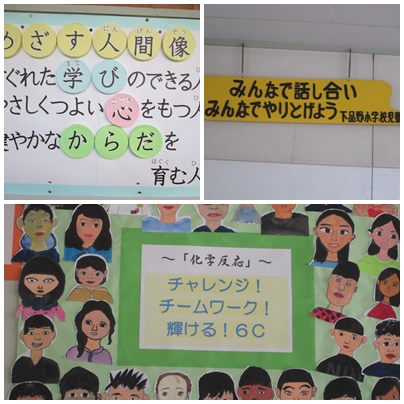 めざす人間像
ぐれた学びのできる人
やさしくつよい心をもつ人
健やかなからだを
育む人
みんなで話し合い
みんなでやりとげよう 下品野小学校児童
～「化学反応」～
チャレンジ！
チームワーク！
輝ける！６Ｃ